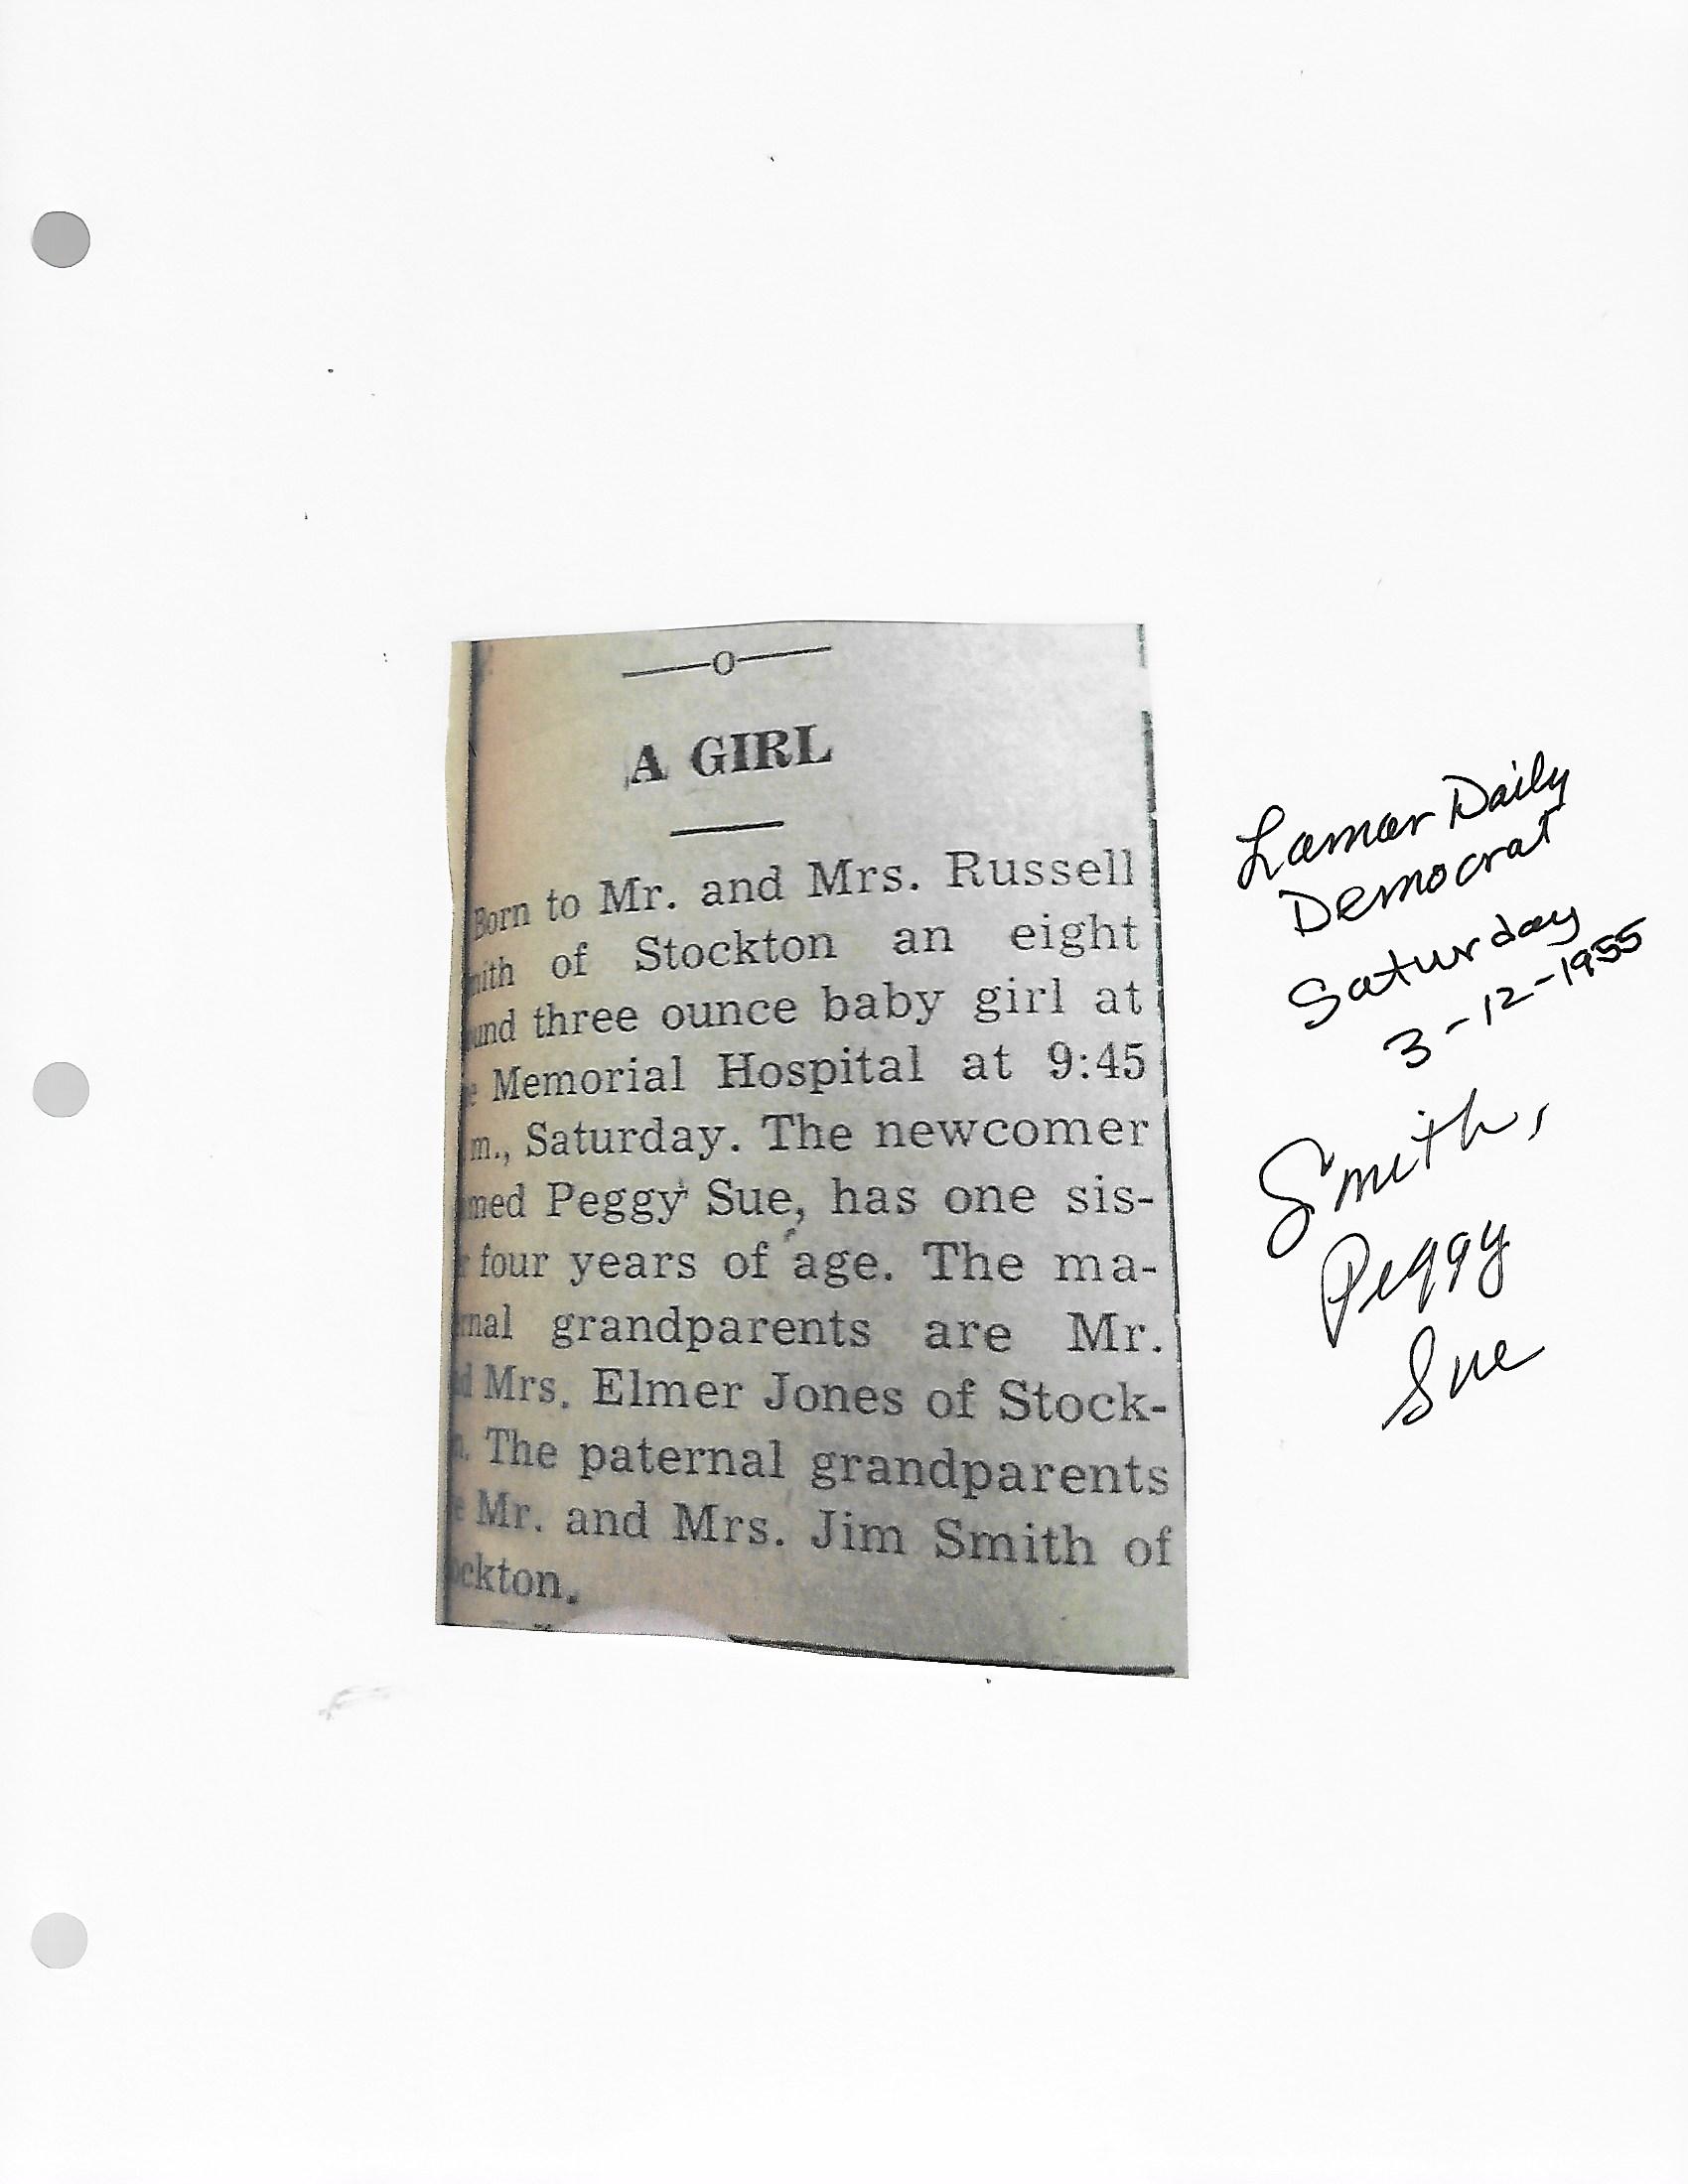 —o—
A GIRL
Born to Mr. and Mrs. Russell
mith of Stockton an eight
ound three ounce baby girl at
e Memorial Hospital at 9:45
m., Saturday. The newcomer
med Peggy Sue, has one sis-
r four years of age. The ma-
rnal grandparents are Mr.
d Mrs. Elmer Jones of Stock-
n. The paternal grandparents
e Mr. and Mrs. Jim Smith of
ockton.
Lamar Daily
Democrat
Saturday
3-12-1955
Smith,
Peggy
Sue